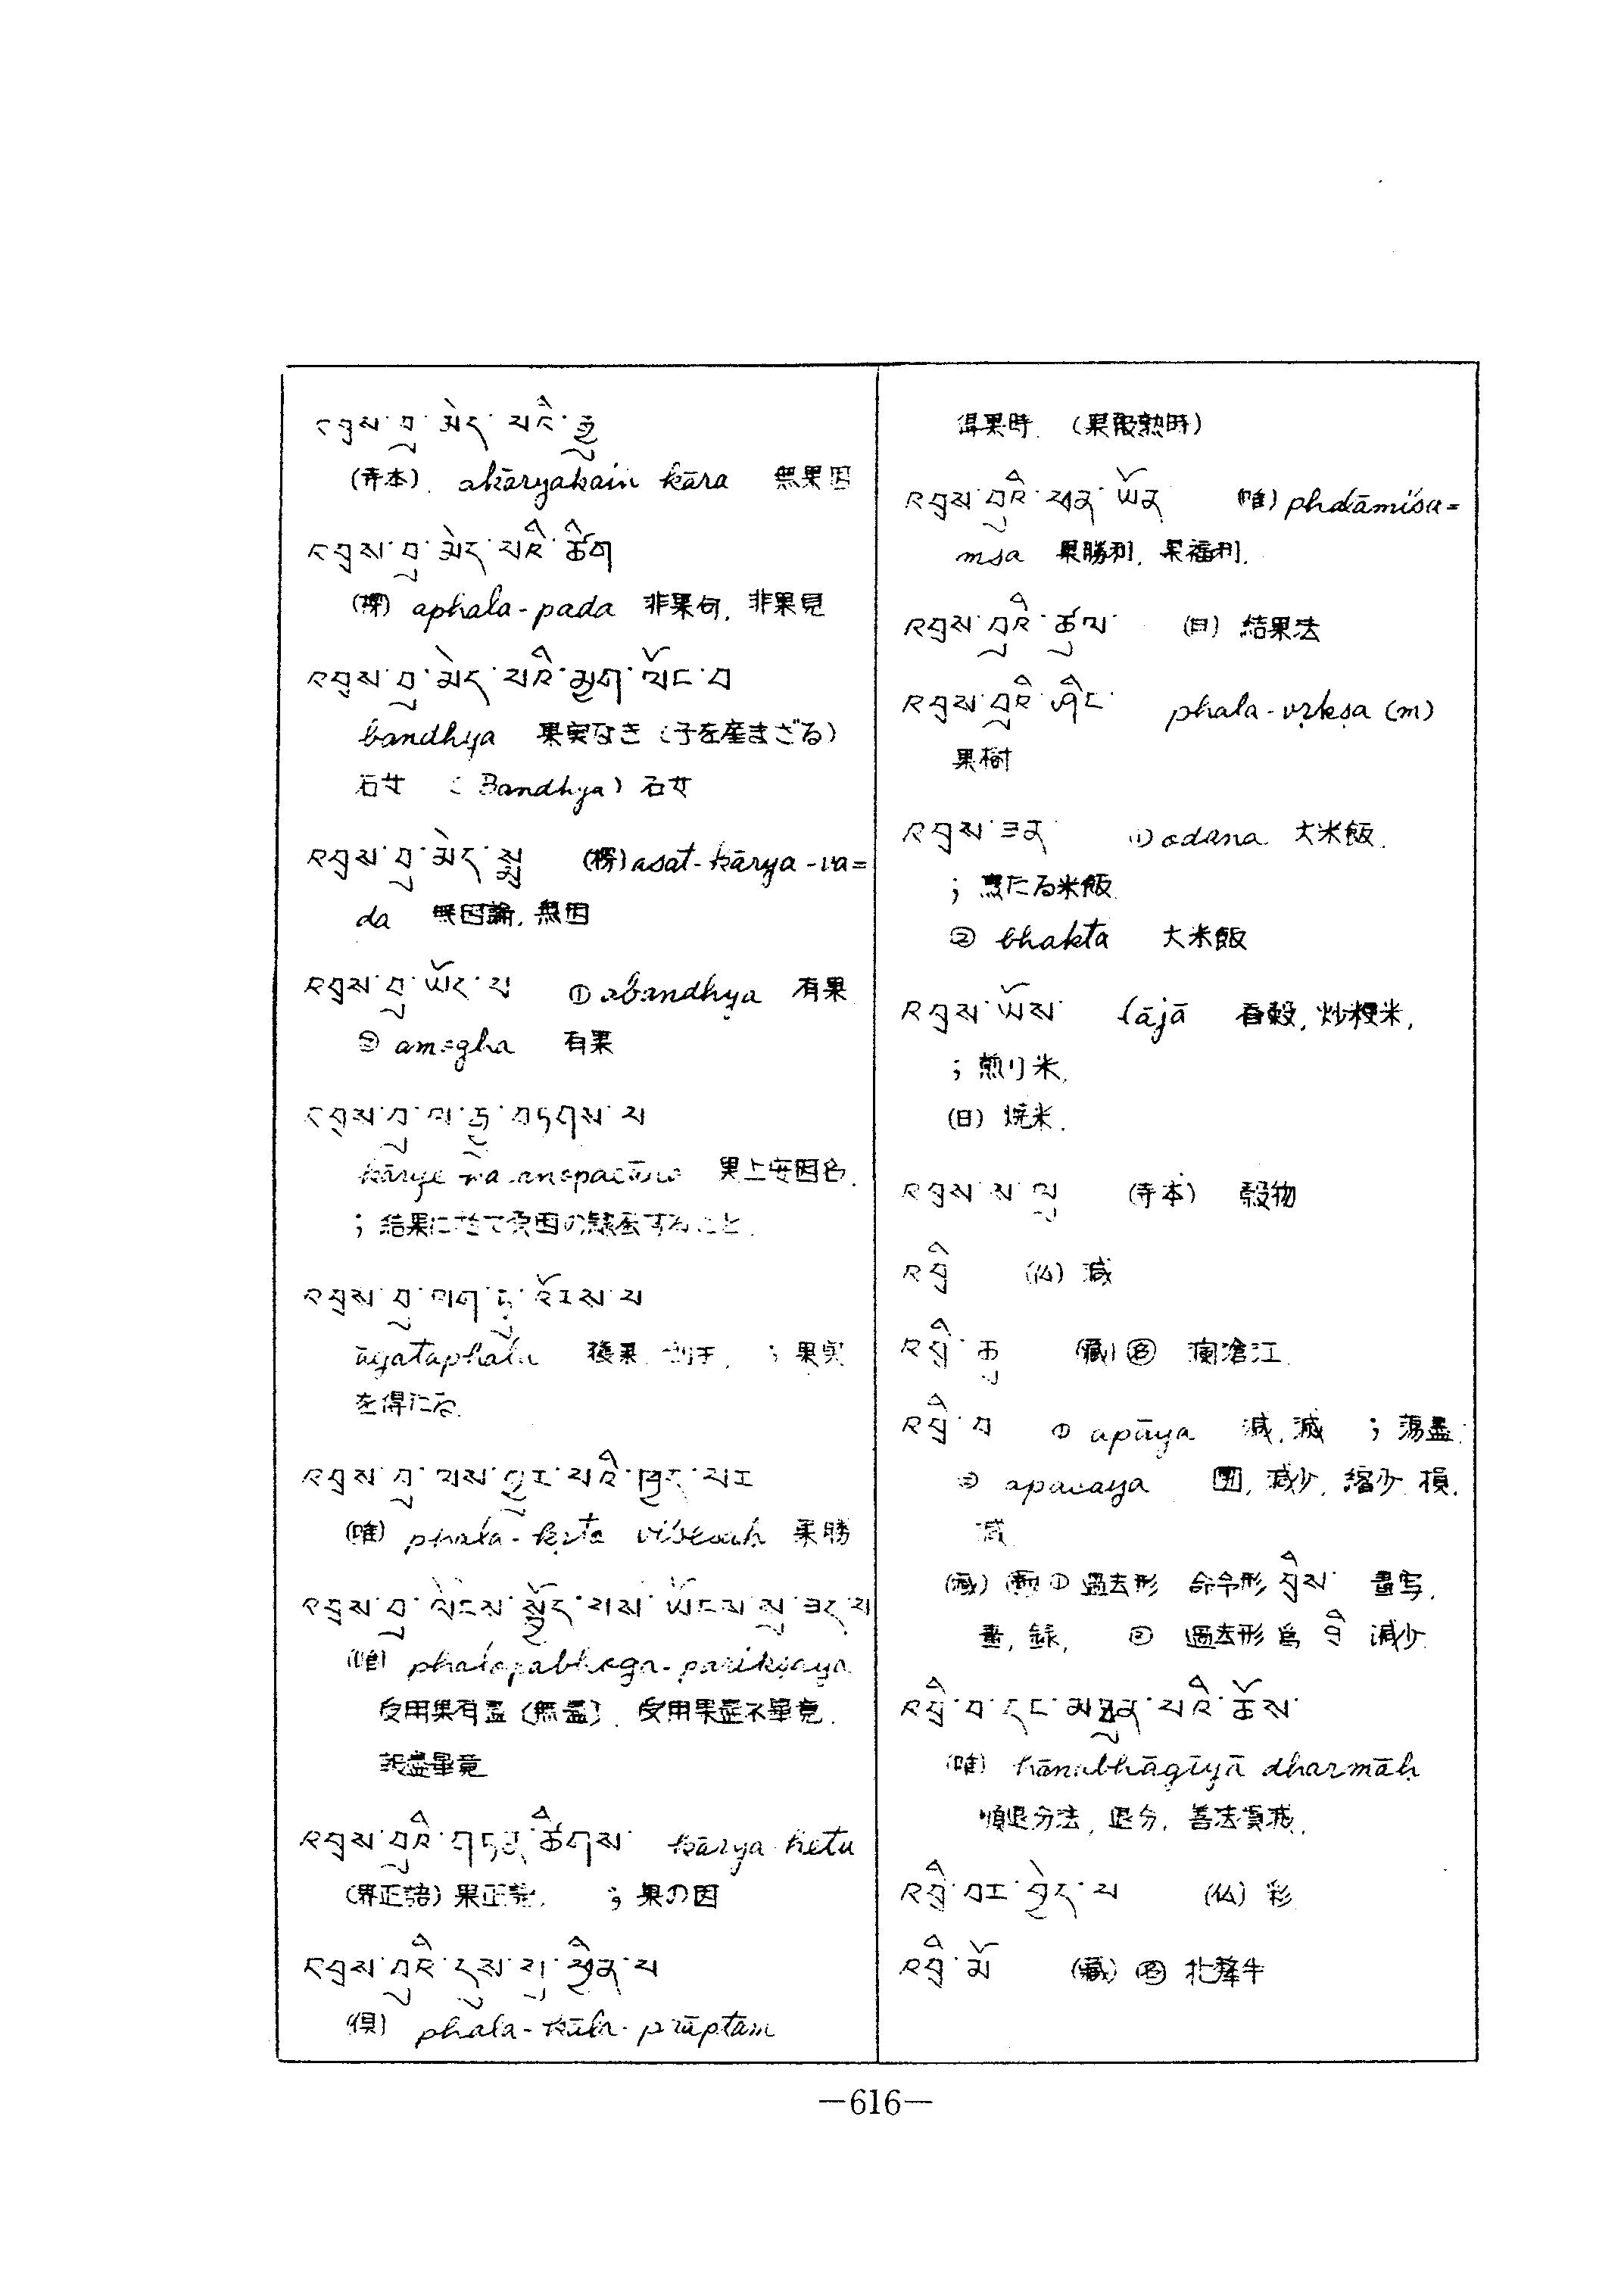 འབྲས་བུ་མེད་པའི་རྒྱུ
(寺本). akāryakaiṁ kāra 無果因
འབྲས་བུ་མེད་པའི་ཚིག
aphala-pada 非果句, 非果見
འབྲས་བུ་མེད་པའི་མྱུག་ལོང་བ
bandhya 果実なき (子を産まざる)
石女 (Bandhya) 石女
འབྲས་བུ་མེད་སྨྲ (楞) asat-kārya-va=
da 無因論, 無因
འབྲས་བུ་ཡོད་པ ① abandhya 有果
② amogha 有果
འབྲས་བུ་ལ་རྒྱུ་བཏགས་པ
果上安因名.
; 結果に
འབྲས་བུ་ལག་ཏུ་འོངས་པ
āgataphala ; 果実
を得たる.
འབྲས་བུ་ལས་བྱུང་བའི་ཁྱད་པར
(唯) phala-kṛta 果勝
འབྲས་བུ་ལོངས་སྤྱོད་པས་ཡོངས་སུ་ཟད་པ
(唯) phalopabhoga-parikṣaya
受用果有盡 (無盡). 受用果盡不畢竟.
盡畢竟
འབྲས་བུའི་གཏན་ཚིགས་ kārya-hetu
果正 ; 果の因
འབྲས་བུའི་དུས་སུ་ཕྱིན་པ
(倶) phala-kāla-prāptam
得果時. (果報熟時)
འབྲས་བུའི་ཕན་ཡོན (唯) phalāmiśa=
msa 果勝利, 果福利.
འབྲས་བུའི་ཚུལ་ (日) 結果法
འབྲས་བུའི་ཤིང་ phala-vṛkṣa (m)
果樹
འབྲས་ཟན་ ① odana 大米飯.
; 煮たる米飯.
② bhakta 大米飯
འབྲས་ཡོས་ lājā 春穀, 炒粳米,
; 煎り米.
(日) 焼米.
འབྲས་ས་ལུ (寺本) 穀物
འབྲི (仏) 減
འབྲི་ཆུ (藏) 名 瀾滄江.
འབྲི་བ ① apāya 減, 滅 ; 蕩盡.
② apacaya 減少, 縮少 損.
減.
(藏) 動 ① 過去形 命令形 བྲིས་ 畫写.
畫, 録, ② 過去形 為 བྲི 減少.
འབྲི་བ་དང་མཐུན་པའི་ཆོས་
(唯) hānabhāgīyā dharmāḥ
順退分法, 退分, 善法
འབྲི་བར་བྱེད་པ (仏) 彩
འབྲི་མོ (藏) 名 牝犛牛
—616—